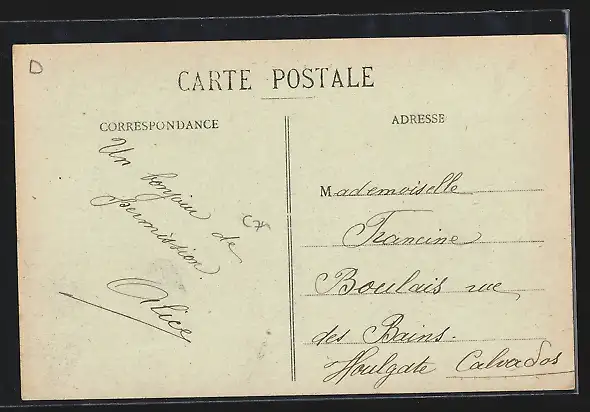 D
CARTE POSTALE
CORRESPONDANCE
Un bonjour de
permission.
Alice
ADRESSE
Mademoiselle
Francine
Boulais rue
des Bains.
Houlgate Calvados